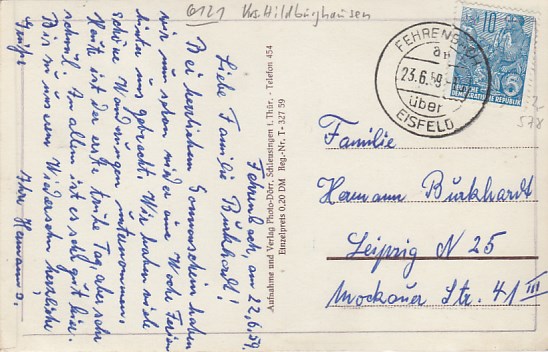 G121 Krs. Hildburghausen
Fehrenbach, am 22.6.59.
Liebe Familie Burkhardt!
Bei herrlichem Sonnenschein haben
wir nun schon wieder eine Woche Ferien
hinter uns gebracht. Wir haben viele
schöne Wandrungen unternommen.
Heute ist der erste trübe Tag, aber sehr
schwül. An allem ist es sehr gut hier.
Bis in uns ein Wiedersehn herzliche
Grüße Ihre Hermanns.
Aufnahme und Verlag Photo-Dörr, Schleusingen i. Thür. - Telefon 454
Einzelpreis 0,20 DM Reg.-Nr. T- 327 59
FEHRENBACH
23.6.59
über
EISFELD
10
DEUTSCHE
DEMOKRATISCHE REPUBLIK
5
2
578
Familie
Hermann Burkhardt
Leipzig N 25
Mockauer Str. 41 III